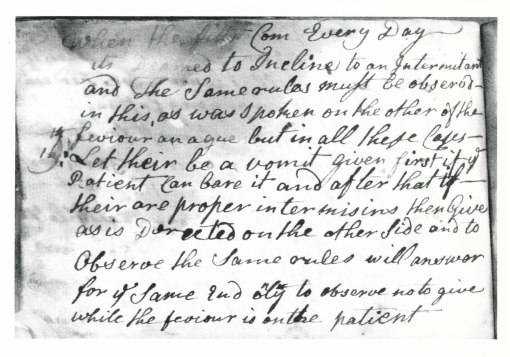 when the fits Com Every Day
it is Deemed to Incline to an Intermitant
and the Same rules must be obserod
in this, as was Spoken on the other of the
feviour an ague but in all these Cases
Let their be a vomit given first if ye
Patient Can bare it and after that if
their are proper intermisins then Give
as is Dorected on the other Side and to
Observe the Same rules will answor
for ye Same End only to observe no to give
while the feviour is on the patient